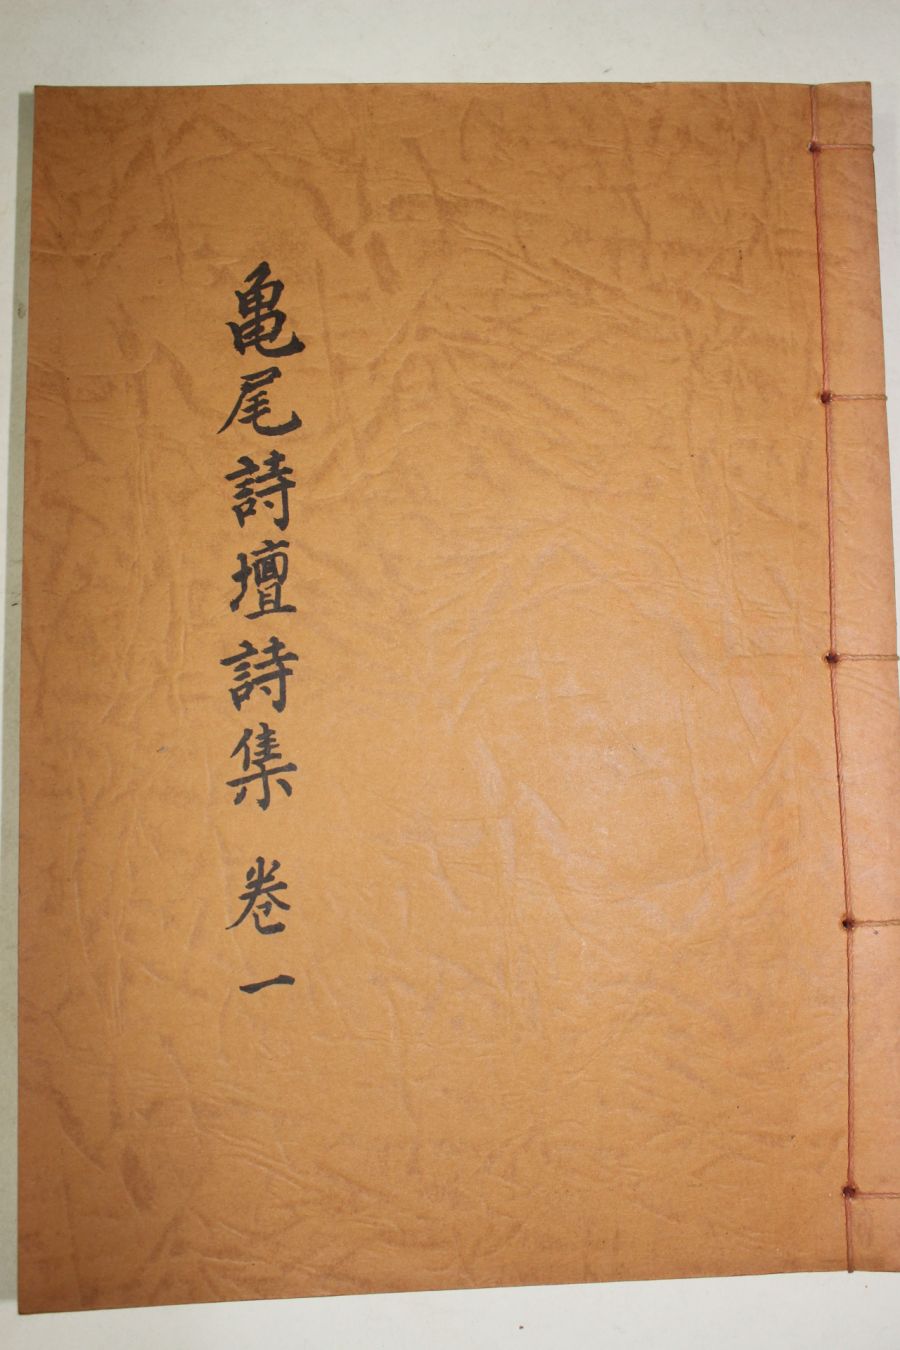 亀尾詩壇詩集 卷一